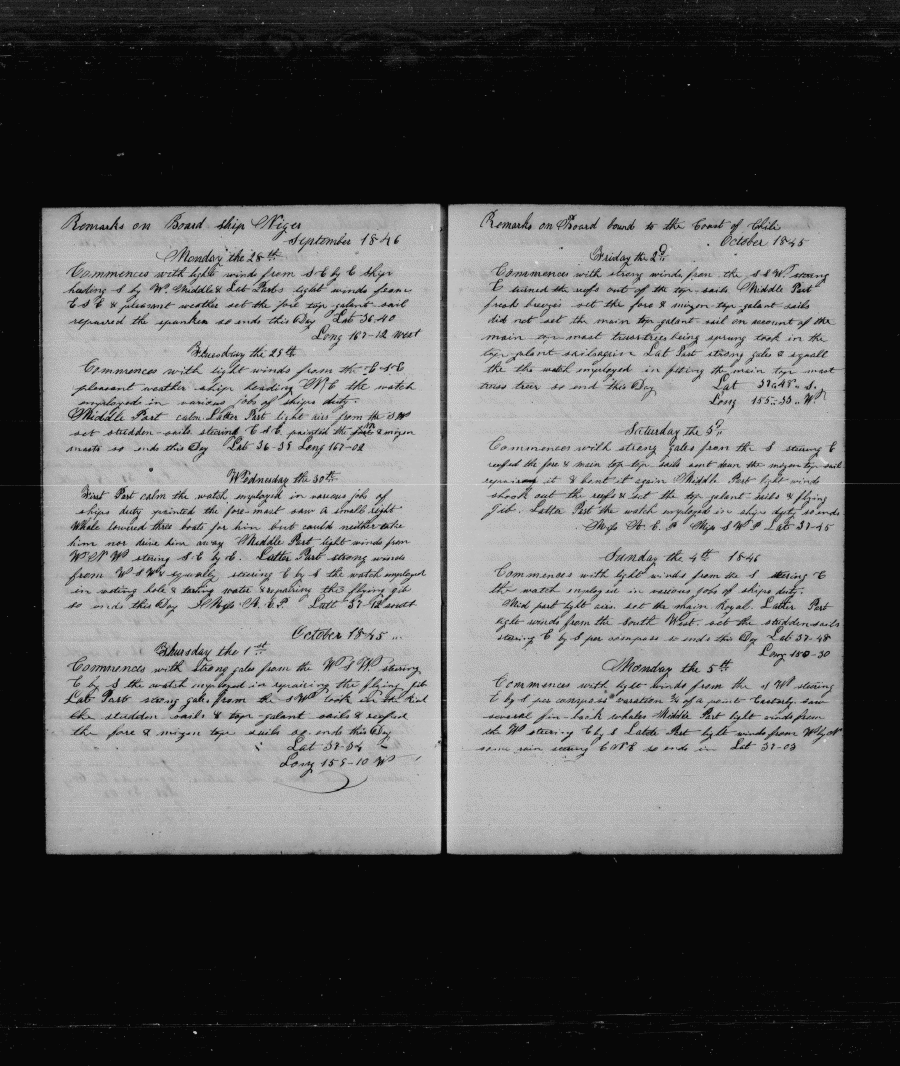 Remarks on Board ship Niger
September 1846
Monday the 28th
Commences with light winds from S E by E Ship
heading S by W. Middle & Lat Parts light winds from
E S E & pleasant weather set the fore top galant sail
repaired the spanker so ends this Day Lat 36-40
Long 167-12 West
Thuesday the 29th
Commences with light winds from the E S E
pleasant weather ship heading N E the watch
employed in various jobs of ships duty.
Middle Part calm Latter Part light airs from the S W
set studden-sails steering E S E painted the fore & mizon
masts so ends this Day Lat 36-38 Long 167-02
Wednesday the 30th
First Part calm the watch employed in various jobs of
ships duty painted the fore-mast saw a small right
Whale lowered three boats for him but could neither take
him nor drive him away Middle Part light winds from
W. N. W stering S. E by E. Latter Part strong winds
from W S W & squaly steering E by S the watch employed
in & taring water & repairing the flying gib
so ends this Day Latt 37-12 south
October 1845
Thursday the 1st
Commences with strong gales from the W S W. stering
E by S the watch employed in repairing the flying jib
Lat Part strong gales from the S W took in the
the studden sails & top-galant sails & reefed
the fore & mizon top sails so ends this Day
Lat 37-34
Long 159-10 W
Remarks on Board bound to the Coast of Chili
October 1845
Friday the 2d
Commences with strong winds from the S S W stering
E turned the reefs out of the top-sails Middle Part
fresh breezes set the fore & mizon top-galant-sails
did not set the main top galant sail on account of the
main top mast truss trees being sprung took in the
top-galant sails again Lat Part strong gales & squall
the the watch employed in fixing the main top mast
truss trees so end this Day Lat 37-48 S.
Long 155-33 W
Saturday the 3d
Commences with strong gales from the S steering E
reefed the fore & main top top sails sent down the mizon top sail
repairing it & bent it again Middle Part light winds
shook out the reefs & set the top-galant-sails & flying
Jib. Latter Part the watch employed in ships duty so ends
Lat 37-45
Sunday the 4th 1846
Commences with light winds from the S steering E
the watch employed in vaious jobs of ships duty.
Mid part light airs set the main Royal. Latter Part
light winds from the South West. set the studdensails
stering E by S per compass so ends this Day Lat 37-48
Long 150-30
Monday the 5th
Commences with light winds from the S W stering
E by S per compass variation ¾ of a point Easterly saw
several fin-back whales Middle Part light winds from
the W stering E by S Latde Part light winds from W by N
some rain stering E N E so ends in Lat 37-03